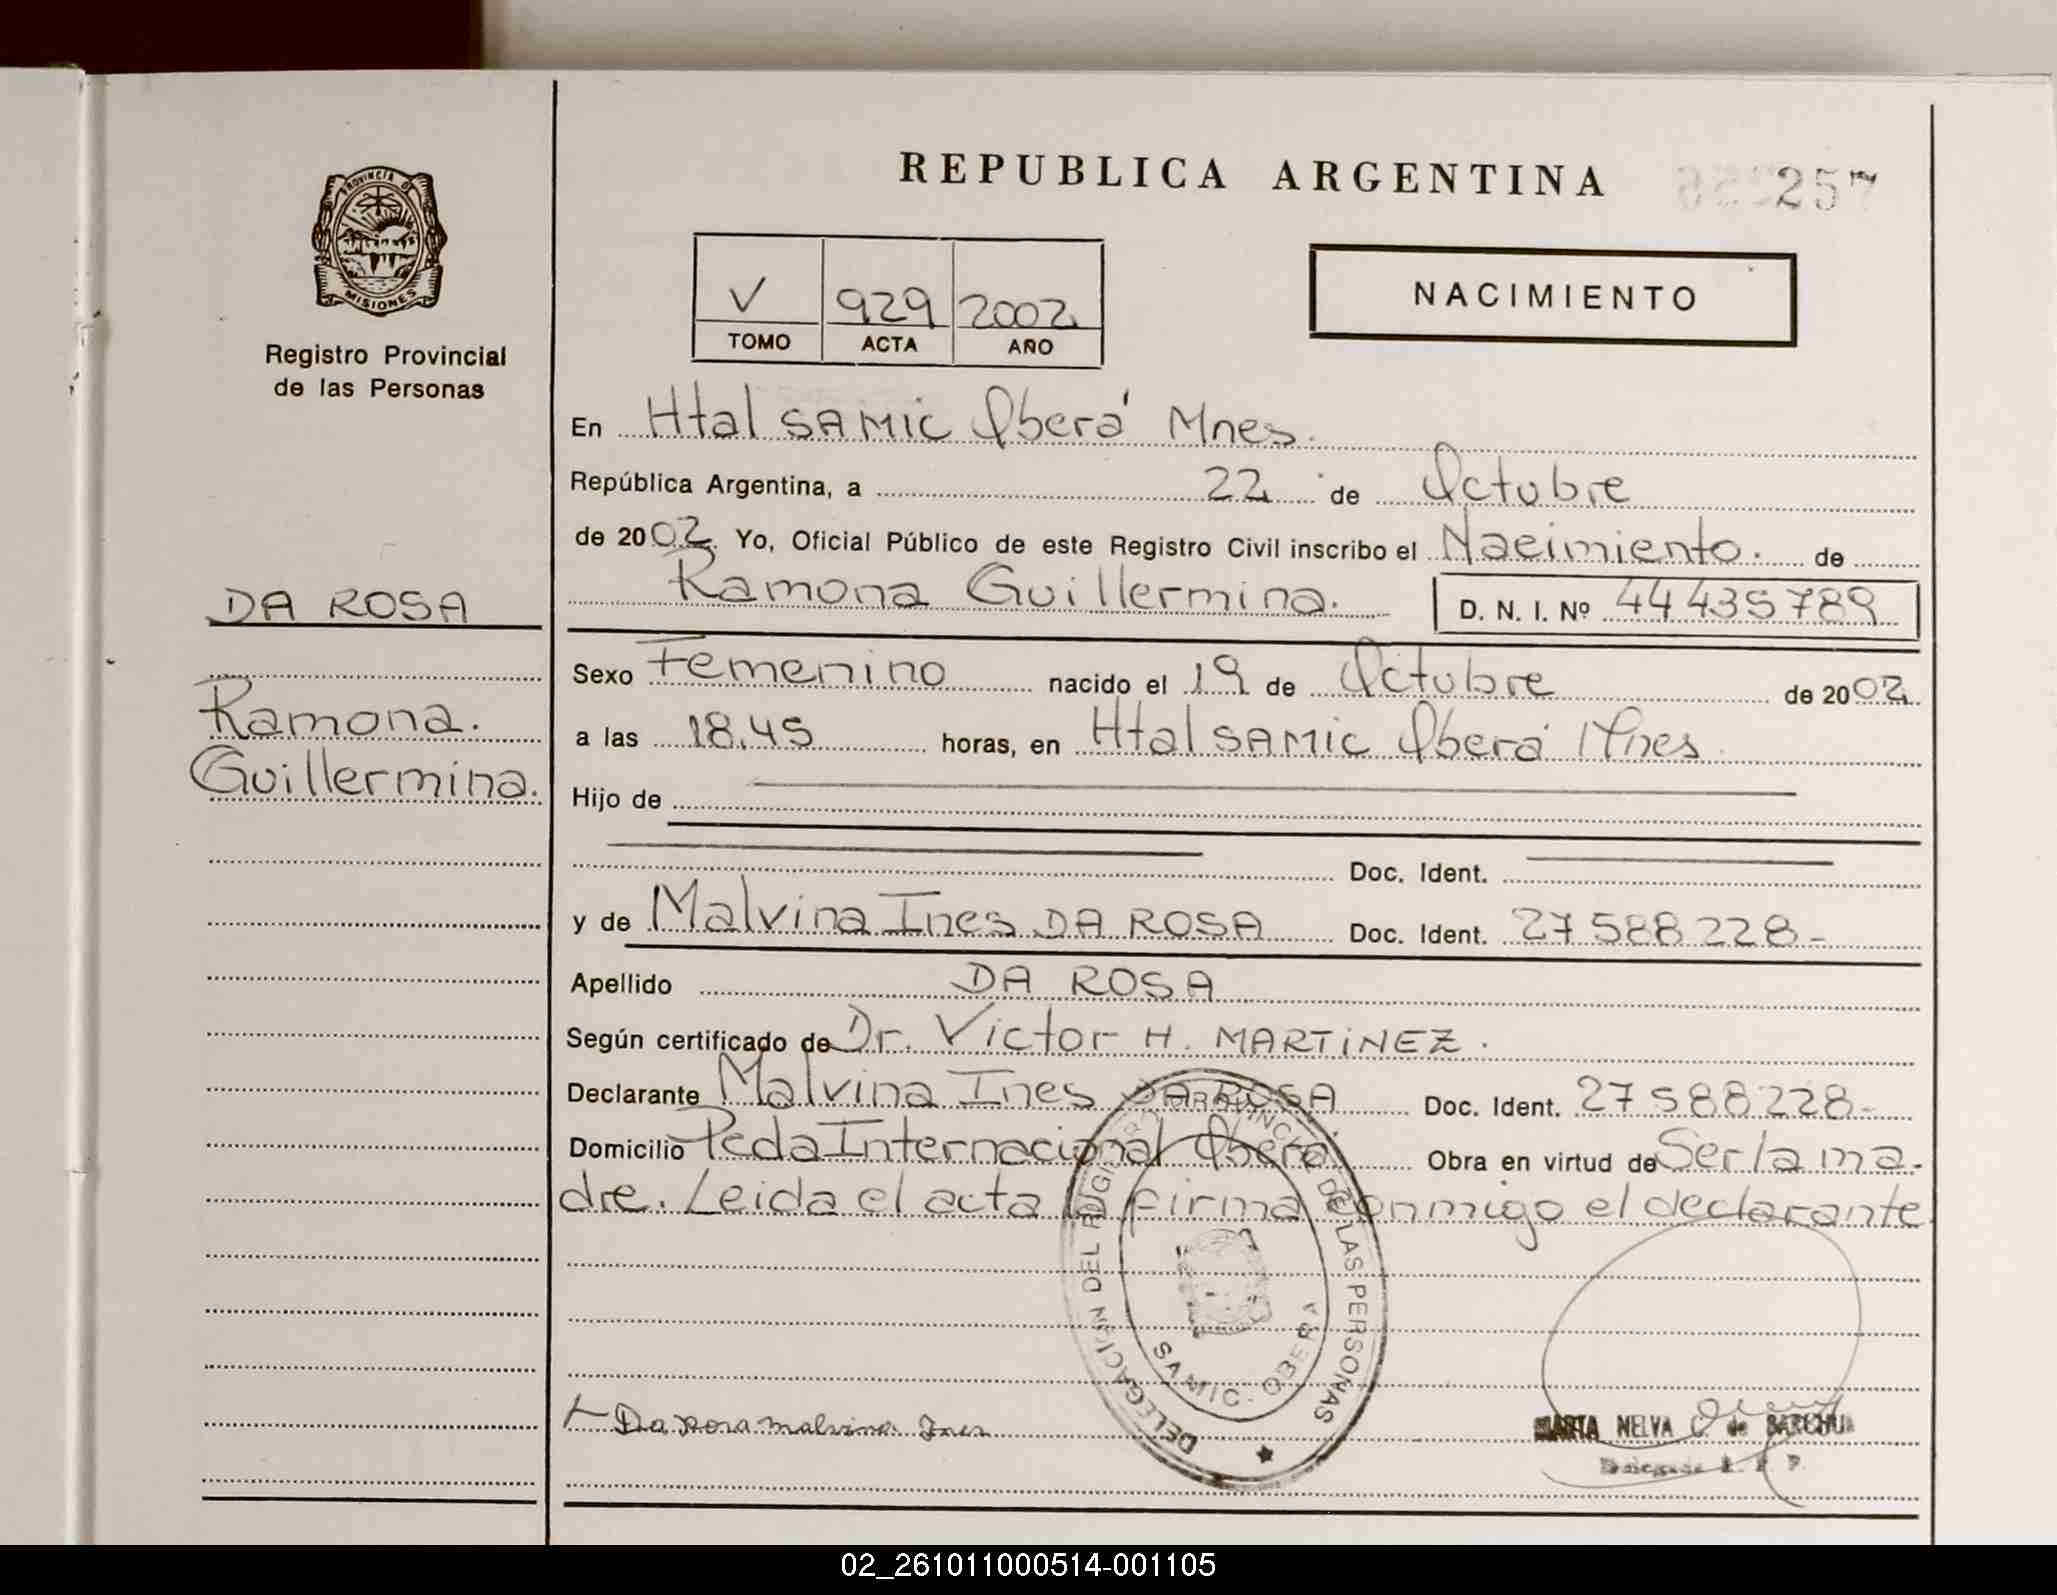 REPUBLICA ARGENTINA
257
PROVINCIA DE
MISIONES
Registro Provincial
de las Personas
V 929 2002
TOMO ACTA AÑO
NACIMIENTO
En Htal SAMIC Oberá Mnes.
República Argentina, a 22 de Octubre
de 2002. Yo, Oficial Público de este Registro Civil inscribo el Nacimiento. de
Ramona Guillermina.
D. N. I. Nº 44435789
DA ROSA
Ramona.
Guillermina.
Sexo Femenino nacido el 19 de Octubre de 2002
a las 18.45 horas, en Htal SAMIC Oberá Mnes.
Hijo de
Doc. Ident.
y de Malvina Ines DA ROSA Doc. Ident. 27588228-
Apellido DA ROSA
Según certificado de Dr. Victor H. MARTINEZ.
Declarante Malvina Ines DA ROSA Doc. Ident. 27588228-
Domicilio Internacional Oberá. Obra en virtud de Ser la ma-
dre. Leida el acta la firma conmigo el declarante
DELEGACION DEL REGISTRO PROVINCIAL DE LAS PERSONAS
SAMIC. OBERA
Da Rosa Malvina Ines
MARTA NELVA C. de
02_261011000514-001105